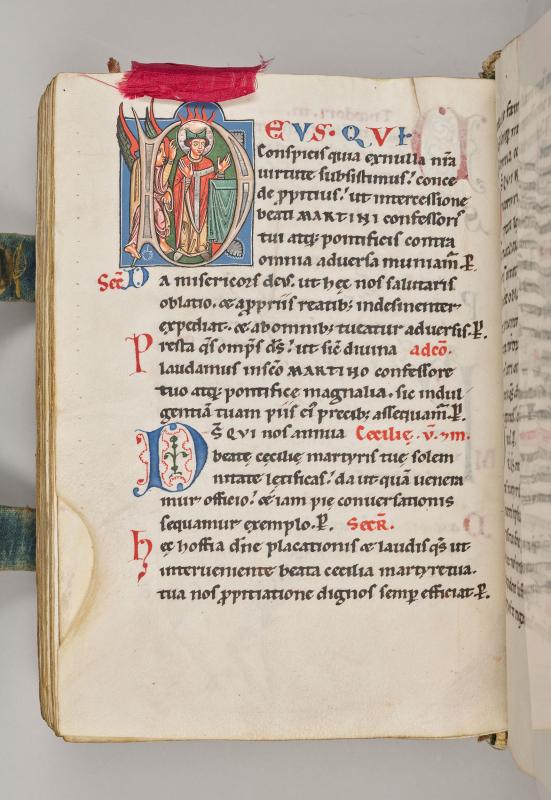 DEVS · QVI
Conspicis quia ex nulla nr̄a
uirtute subsistimus; conce
de ꝓpitius; ut intercessione
beati MARTINI confessoris
tui atq; pontificis contra
omnia aduersa muniam̄. P̲.
Secr̄ Da misericors deus. ut hęc nos salutaris
oblatio. & a ꝓpriis reatib; indesinenter
expediat. & ab omnib; tueatur aduersis. P̲.
Presta qs om̄ps ds̄; ut sic̄ diuina ad cō.
laudamus in sc̄o MARTINO confessore
tuo atq; pontifice magnalia. sic indul
gentiā tuam piis eī precib; assequam̄. P̲.
Ds̄ QVI nos annua Cecilię. v̄. 7 m̄.
beatę cecilię martyris tuę solem
nitate letificas; da ut quā uenera
mur officio; & iam pię conuersationis
sequamur exemplo. P̲. Secr̄.
hęc hostia dn̄e placationis & laudis qs ut
interueniente beata cecilia martyre tua.
tua nos ꝓpitiatione dignos semp̲ efficiat. P̲.